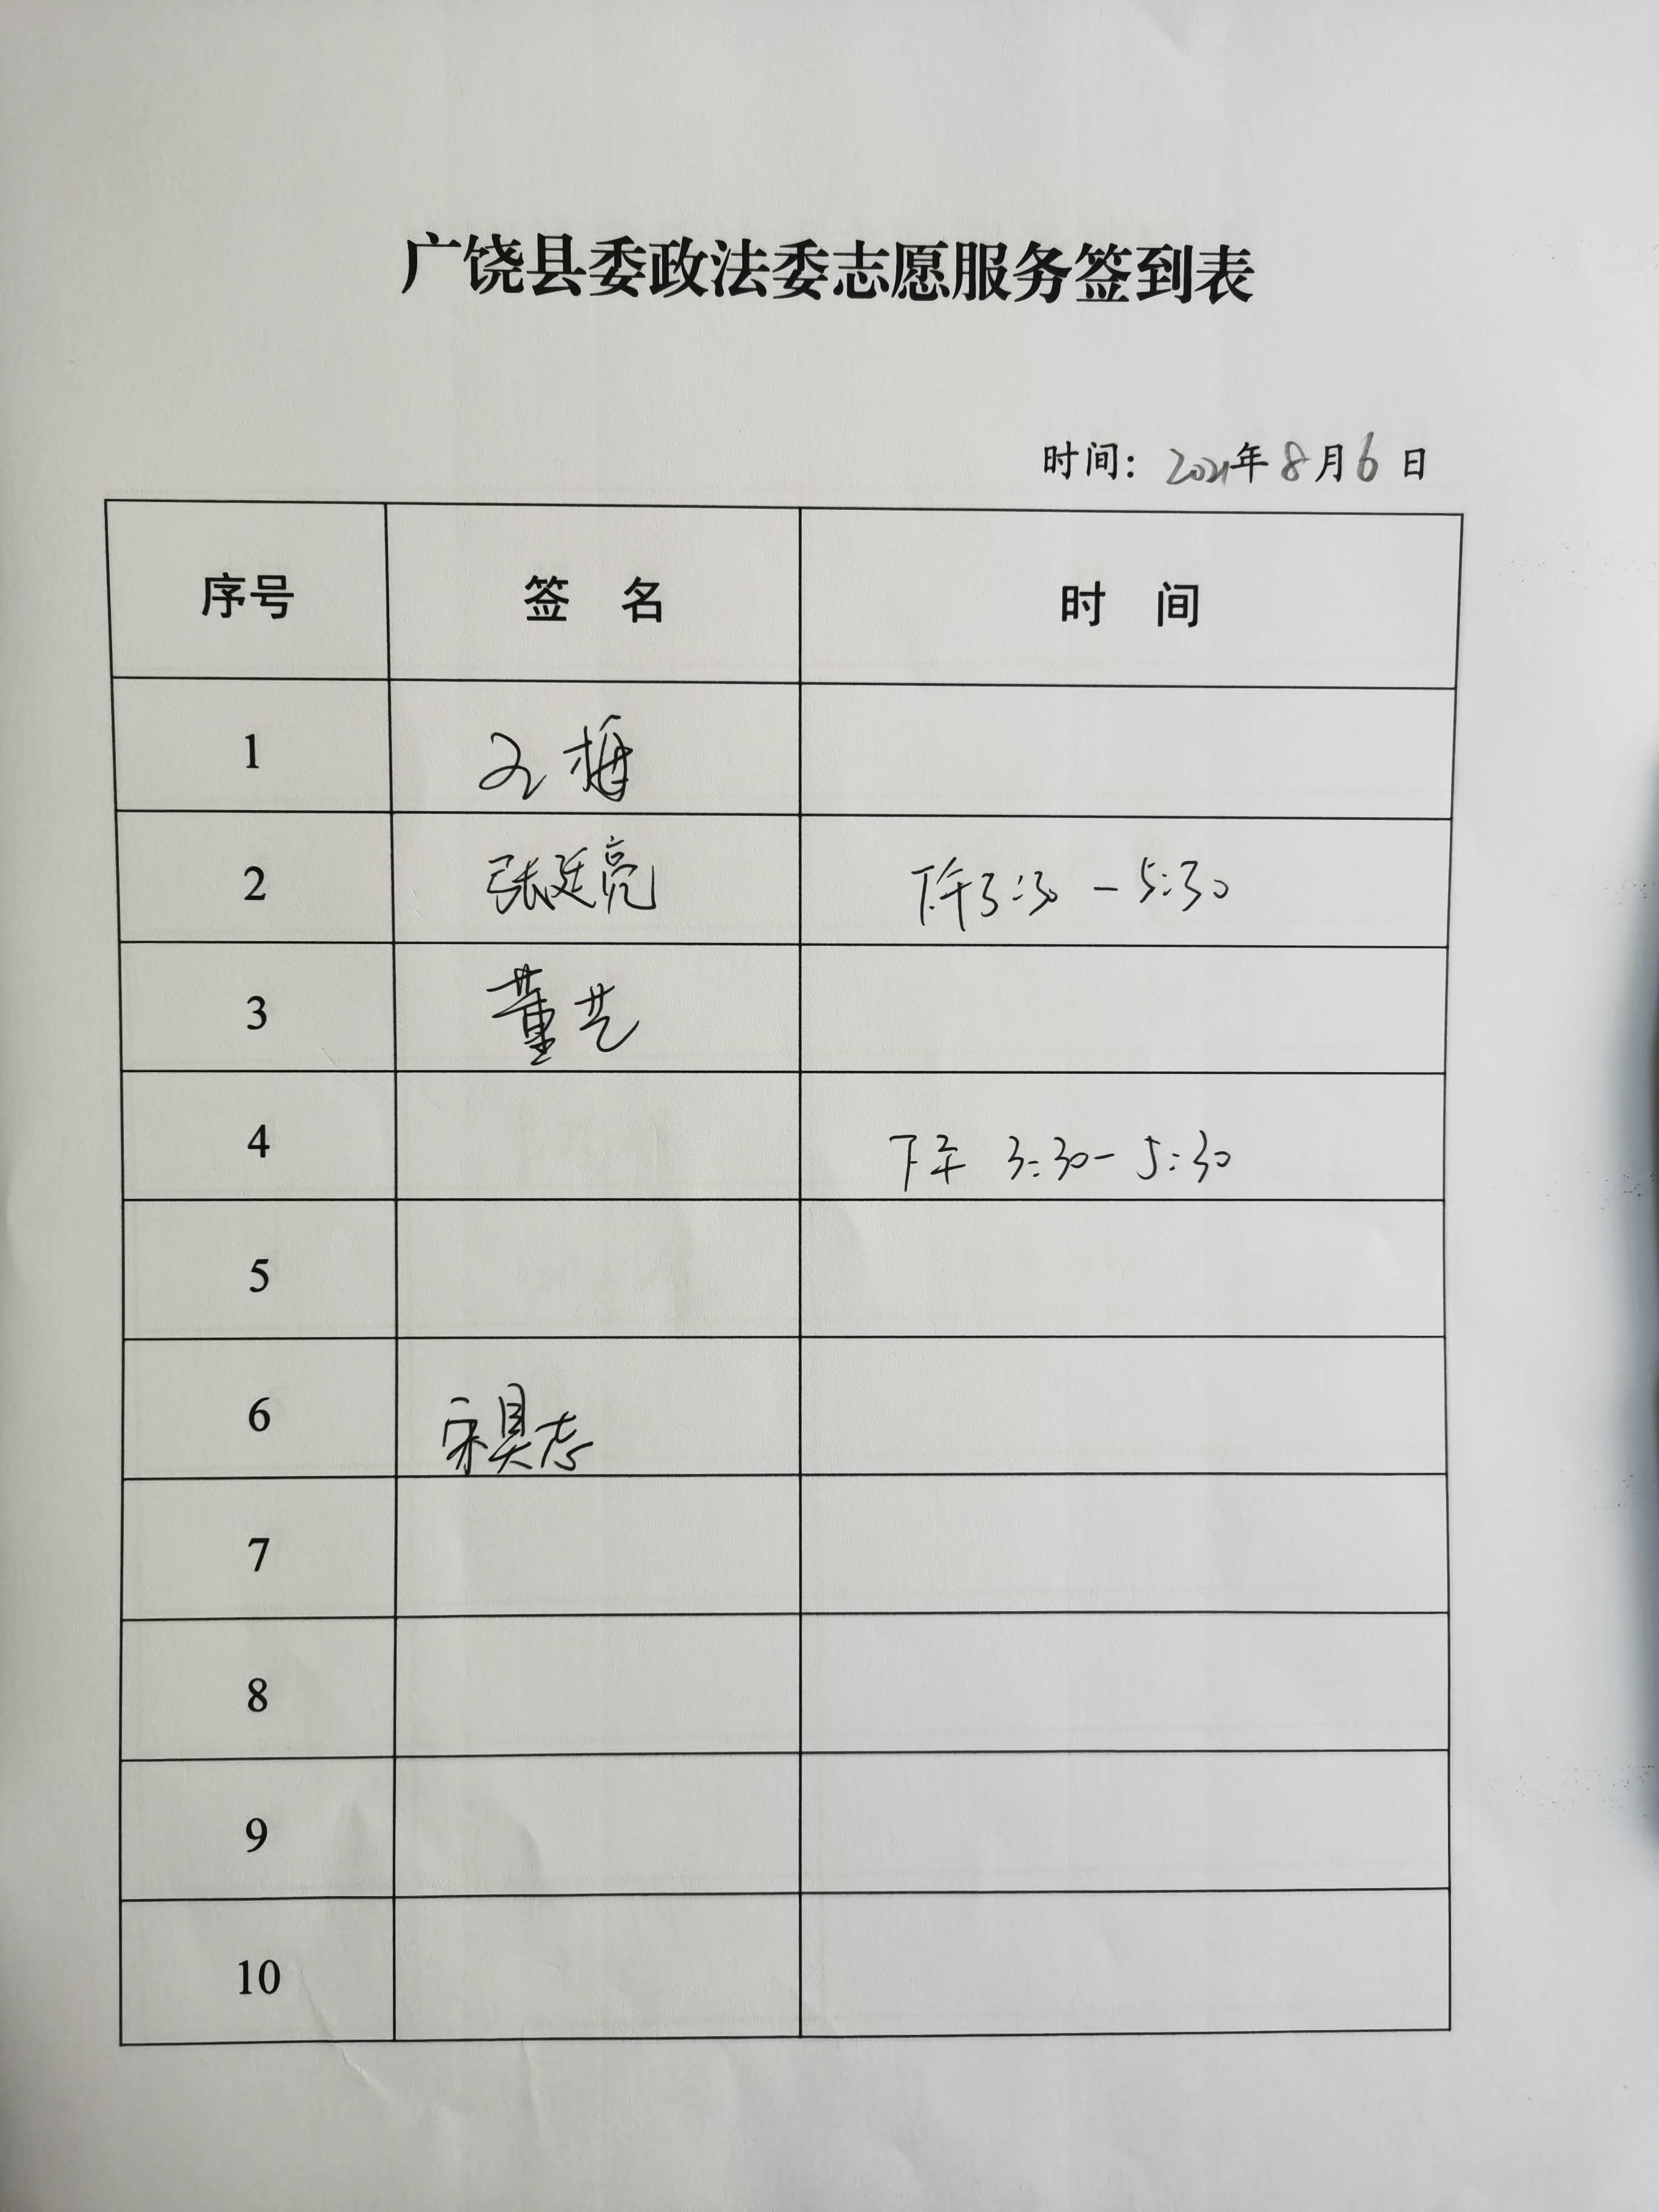 广饶县委政法委志愿服务签到表
时间：2021年8月6日
序号 签 名 时 间
1 梅
2 张廷亮 下午3:30 - 5:30
3 董艺
4 下午 3:30 - 5:30
5
6 宋昊志
7
8
9
10